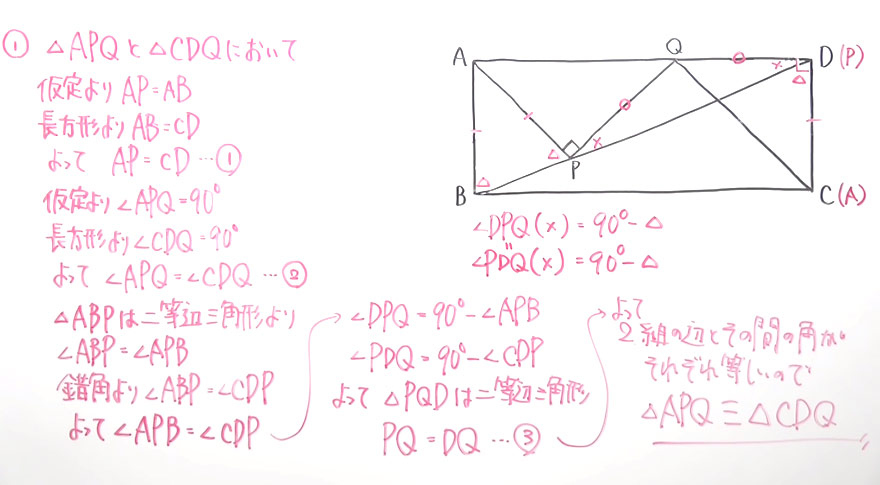 ① △APQと△CDQにおいて
仮定より AP=AB
長方形より AB=CD
よって AP=CD…①
仮定より∠APQ=90°
長方形より∠CDQ=90°
よって ∠APQ=∠CDQ …②
△ABPは二等辺三角形より
∠ABP=∠APB
錯角より∠ABP=∠CDP
よって∠APB=∠CDP
∠DPQ=90°-∠APB
∠PDQ=90°-∠CDP
よって △PQDは二等辺三角形
PQ=DQ …③
よって
2組の辺とその間の角が
それぞれ等しいので
△APQ≡△CDQ
A
Q
D(P)
×
△
△
×
P
△
B
C(A)
∠DPQ(×)=90°-△
〃
∠PDQ(×)=90°-△